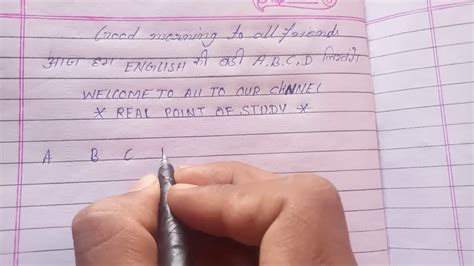 Good morning to all friends
आज हम ENGLISH की बडी A,B,C,D लिखेंगे
WELCOME TO ALL TO OUR CHNNEL
* REAL POINT OF STUDY *
A B C